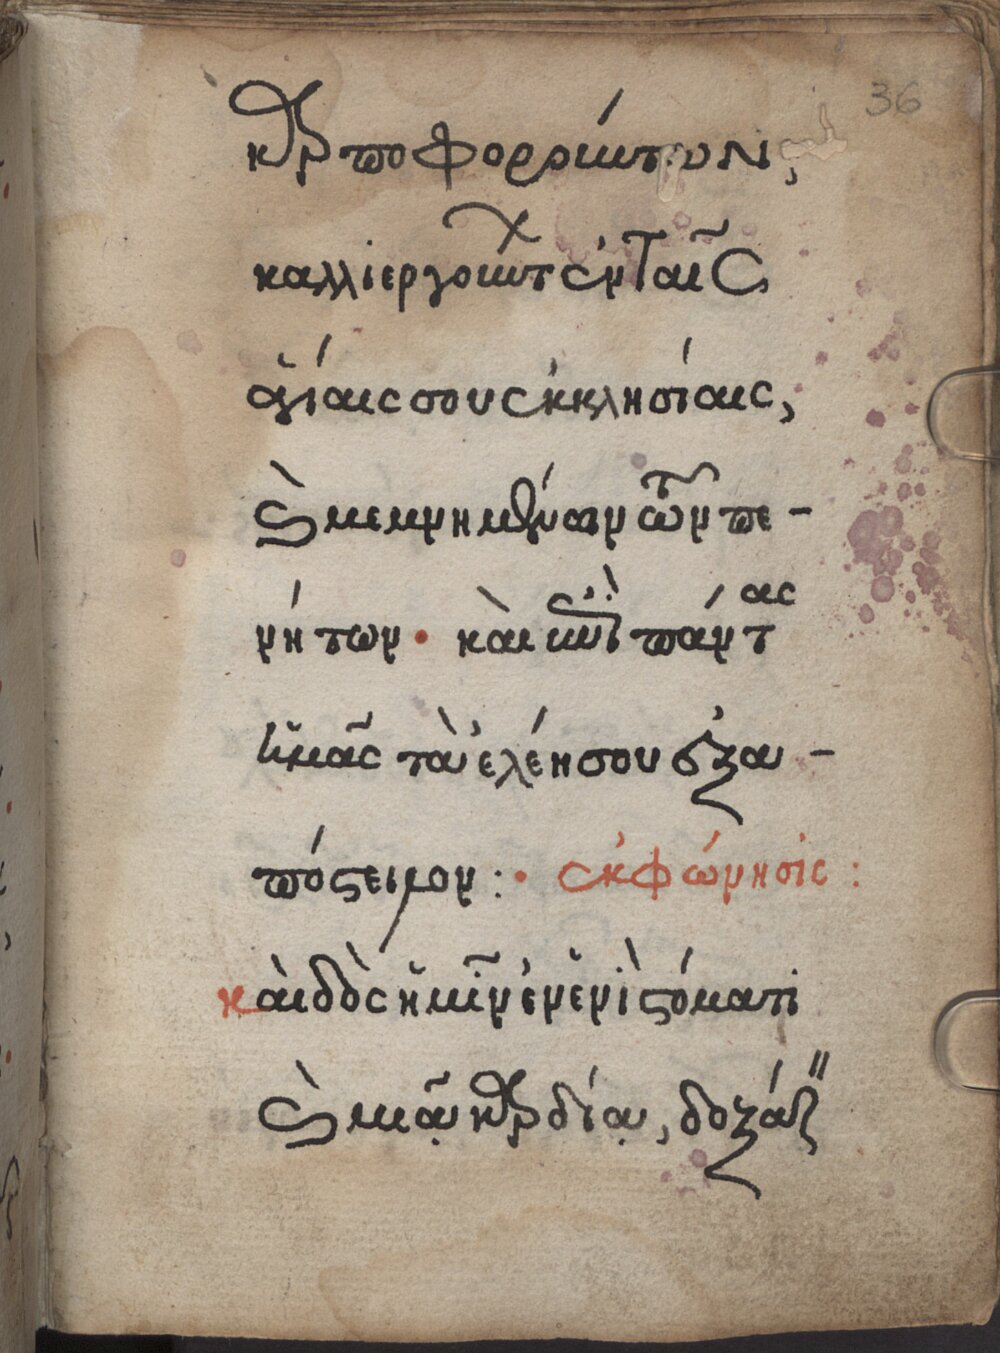 36
καρποφορούντων,
καλλιεργούντ ἐν ταῖς
ἁγίαις σου ἐκκλησίαις,
καὶ μεμνημένων τῶν πε-
νήτων· καὶ ἐπὶ πάντας
ἡμᾶς τὰ ἐλέη σου ἐξα-
πόστειλον:· ἐκφώνησις:
καὶ δὸς ἡμῖν ἐν ἑνὶ στόματι
καὶ μιᾷ καρδίᾳ, δοξάζ